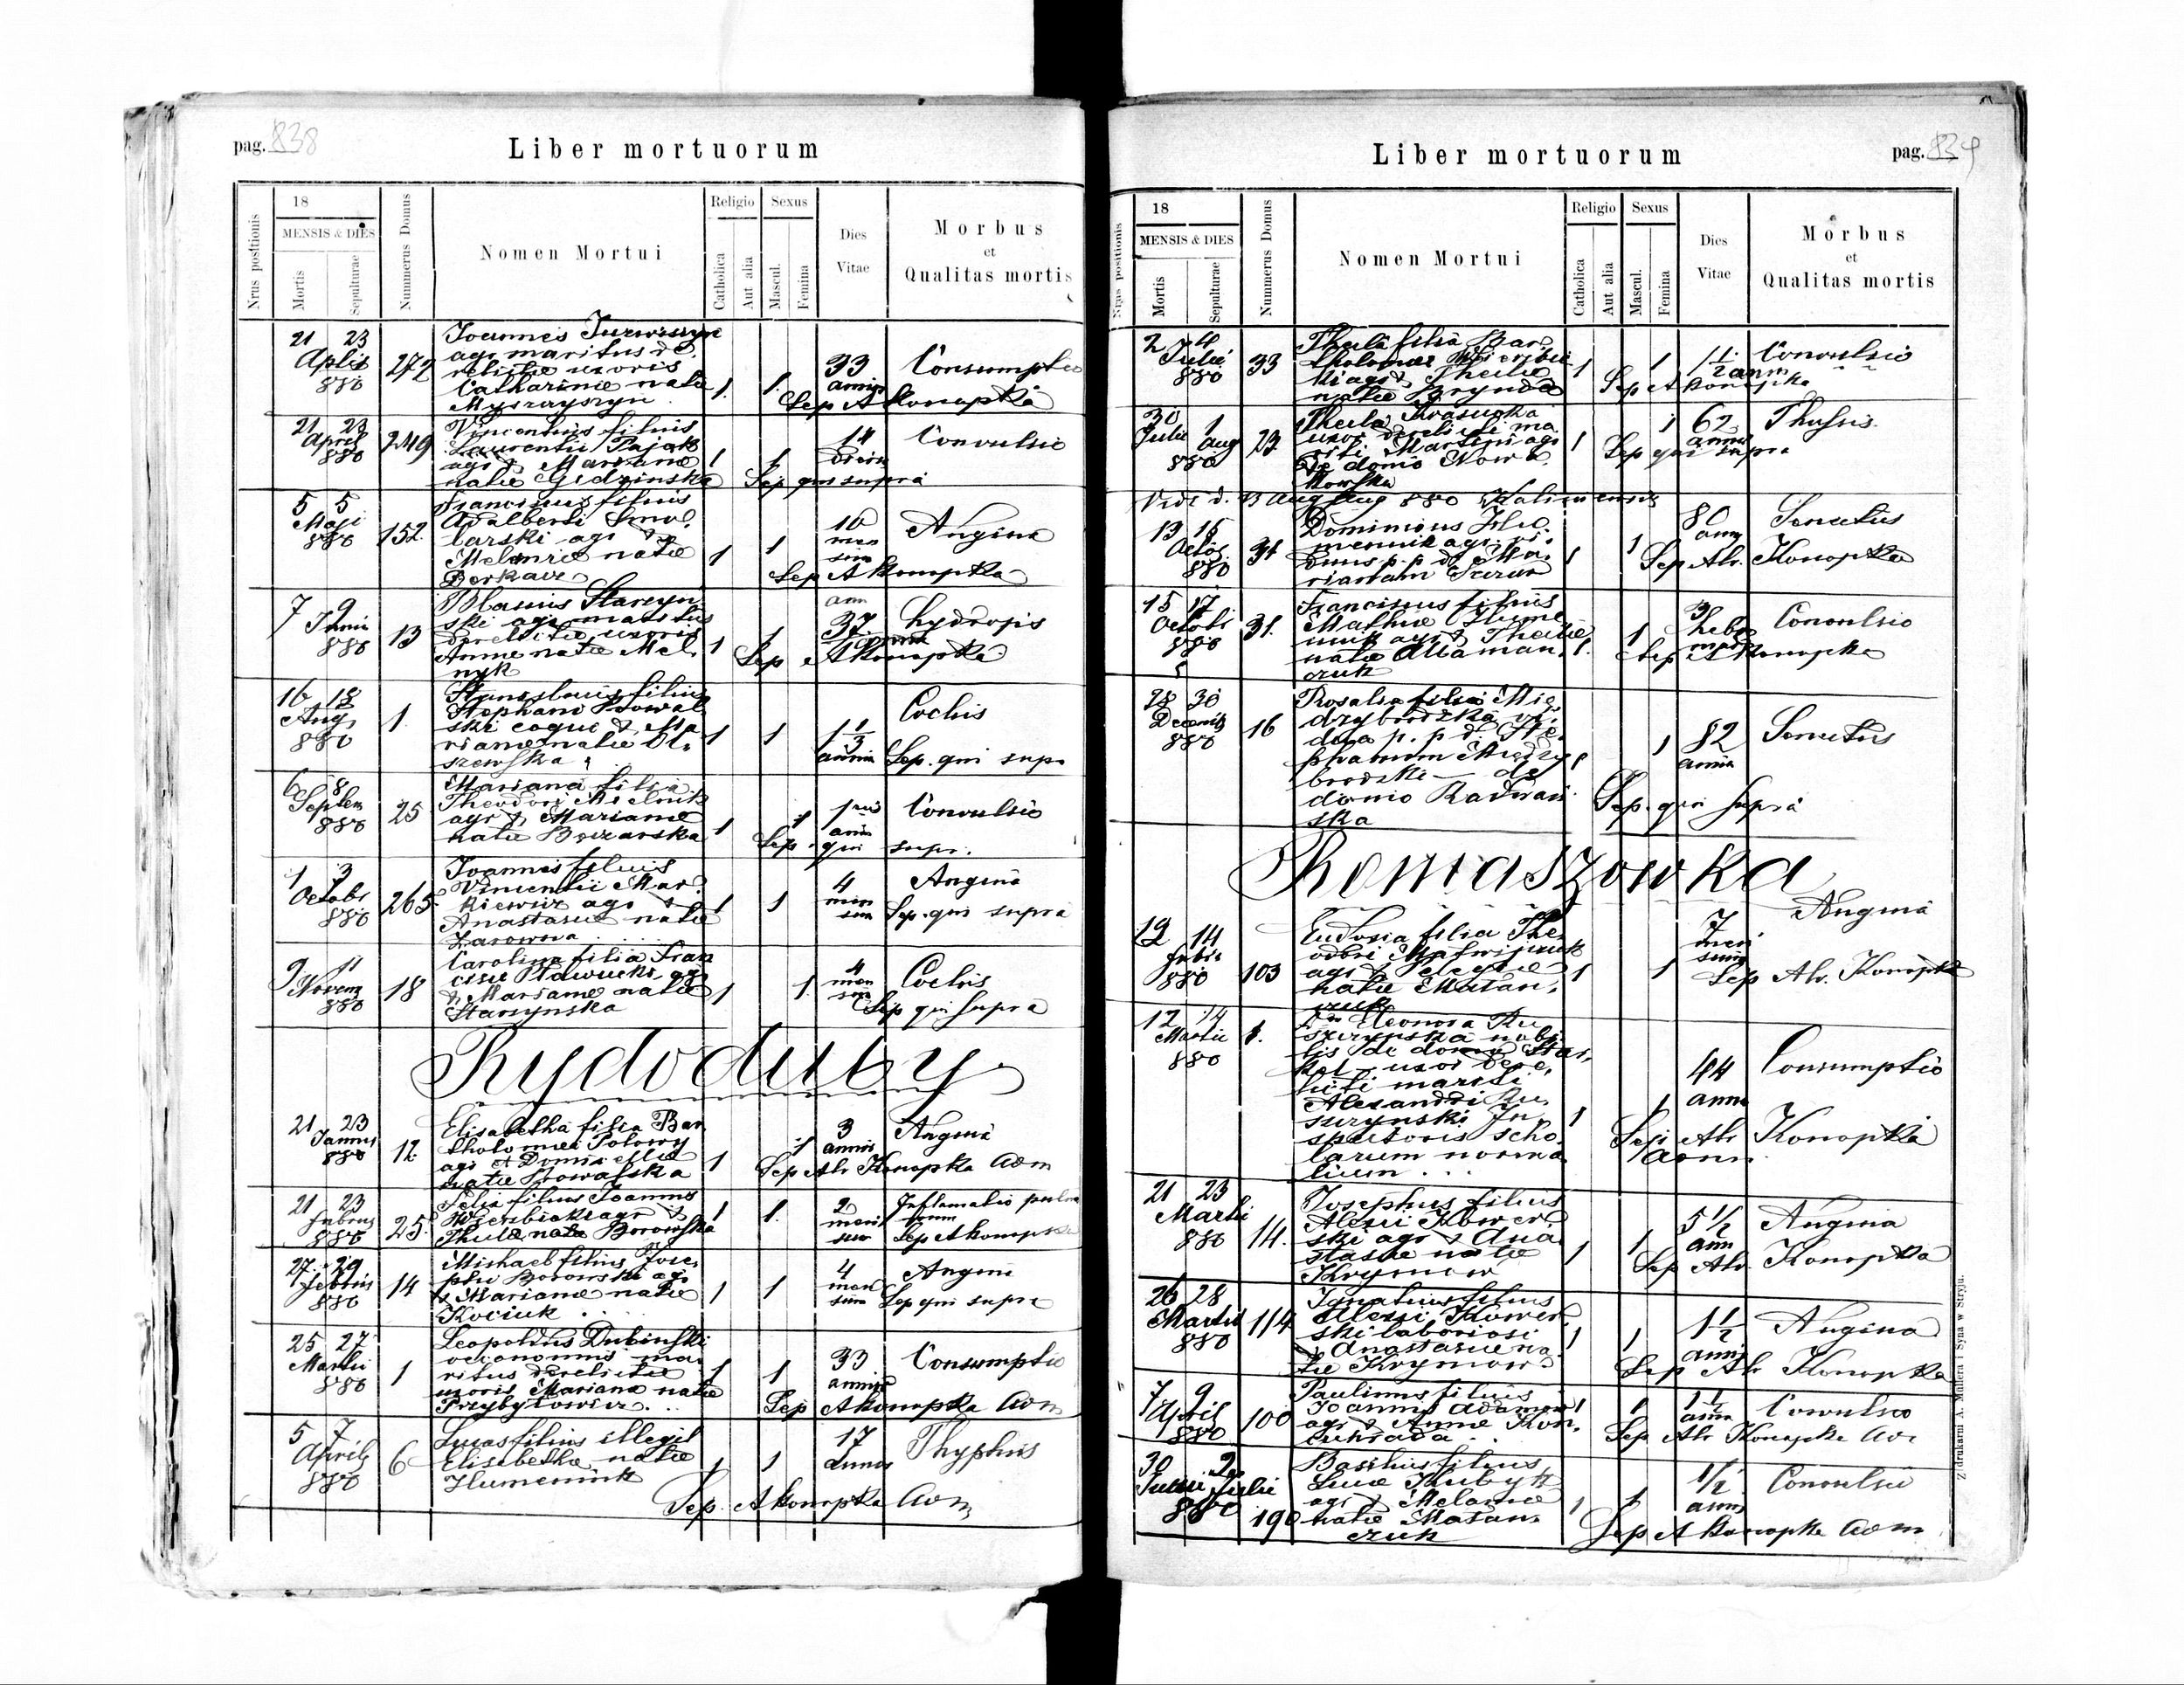 pag. 838
Liber mortuorum
Nrus positionis
18
MENSIS & DIES
Mortis
Sepulturae
Nummerus Domus
Nomen Mortui
Religio
Catholica
Aut alia
Sexus
Mascul.
Femina
Dies
Vitae
Morbus
et
Qualitas mortis
21 23
Aplis
880
272
Joannes
agr. maritus de
relictae uxoris
Catharinae natae
1
1
33
annor
Consumptio
Sep A Konopka
21 23
April
880
249
Vincentius filius
Laurentii Pająk
agr & Marianae
natae Gidzinska
1
1
14
dierum
Convulsio
Sep qui supra
5 5
Maji
880
152
Franciscus filius
Adalberti Smol
larski agr &
Melaniae natae
1
1
10
men
sium
Angina
Sep A Konopka
7 9
Junii
880
13
Blasius Starzyn
ski agr maritus
derelictae uxoris
Annae natae Mel
nyk
1
1
ann
37
hydropis
Sep A Konopka
16 18
Aug
880
1
Stanislaus filius
Stephani Kowal
ski coqui & Ma
rianae natae Ol
szewska
1
1
1 1/3
annor
Cochis
Sep. qui supr
6 8
Septem
880
25
Mariana filia
Theodori Mielnik
agr & Marianae
natae
1
1
1
ann
Convulsio
Sep qui supr.
1 3
Octobr
880
265
Joannes filius
Vincentii Mar
kiewicz agr &
Anastasiae natae
1
1
4
men
sium
Angina
Sep. qui supra
9 11
Novem
880
18
Carolina filia Fran
cisci Sawucki agr
& Marianae natae
Starzynska
1
1
4
men
sium
Cochis
Sep qui supra
Rydoduby
21 23
Januar
880
12
Elisabetha filia Bar
tholomei Polowy
agr et
natae Kowalska
1
1
3
annor
Angina
Sep Alr Konopka Adm
21 23
Febru
880
25
filius Joannis
Wierzbicki agr &
Theclae natae Borowska
1
1
2
mensi
um
Inflamatio pulmo
num
Sep A Konopka
27 29
Febru
880
14
Michael filius Jose
phi Borowski agr
& Marianae natae
Kociuk
1
1
4
men
sium
Angina
Sep qui supra
25 27
Martii
880
1
Leopoldus Dubinski
oeconomus ma
ritus derelictae
uxoris Mariana natae
Przybyłowicz
1
1
33
annor
Consumptio
Sep A Konopka Adm
5 7
Aprilis
880
6
Lucas filius illegit
Elisabethae natae
Humeniuk
1
1
17
annor
Thyphus
Sep. A Konopka Adm
Liber mortuorum
pag. 839
Nrus positionis
18
MENSIS & DIES
Mortis
Sepulturae
Nummerus Domus
Nomen Mortui
Religio
Catholica
Aut alia
Sexus
Mascul.
Femina
Dies
Vitae
Morbus
et
Qualitas mortis
2 4
Julii
880
33
Thecla filia Bar
tholomei Wierzbic
ki agr & Theclae
natae Brynda
1
1
1 1/2 ann
Convulsio
Sep A Konopka
30 1
Julii Aug
880
23
Thecla
uxor derelicti ma
riti Martini agr
de domo Nowa
kowska
1
1
62
annor
Thussis
Sep qui supra
13 15
Octob
880
31
Dominicus Hu
meniuk agr vi
duus p. p. d. Ma
riannam
1
1
80
ann
Senectus
Sep Alr. Konopka
15 17
Octobr
880
31
Franciscus filius
Mathei Hume
niuk agr & Theclae
natae Adaman
czuk
1
1
3
hebdo
mad
Convulsio
Sep A Konopka
28 30
Decemb
880
16
Rosalia filia Mie
dzybrodzka vi
dua p. p. d. Ste
phanum Miedzy
brodzki de
domo Radwań
ska
1
82
annor
Senectus
Sep. qui supra
Thomaszowka
12 14
Febr
880
103
Eudosia filia The
odori Matwijczuk
agr & Pelagiae
natae Matan
czuk
1
1
7
men
sium
Angina
Sep Alr. Konopka
12 14
Martii
880
1
Eleonora Ru
szczynska nobi
lis de domo Star
kel uxor dere
licti mariti
Alexandri Ru
szczynski In
spectoris scho
larum norma
lium
1
1
44
ann
Consumptio
Sep Alr Konopka
Adm
21 23
Martii
880
14
Josephus filius
Alexii Kower
ski agr & Ana
stasiae natae
Krymow
1
1
5 1/2
ann
Angina
Sep Alr. Konopka
26 28
Martii
880
114
Ignatius filius
Alexii Kower
ski laboriosi
& Anastasiae na
tae Krymow
1
1
1 1/2
ann
Angina
Sep Alr Konopka
7 9
April
880
100
Paulinus filius
Joannis Adamow
agr & Annae Kon
1
1
1 1/2
ann
Convulsio
Sep Alr Konopka Adm
30 2
Junii Julii
880
190
Basilius filius
Lucae
agr & Melaniae
natae Matan
czuk
1
1
1/2
ann
Convulsio
Sep A Konopka Adm
Z drukarni A. Müllera i Syna w Stryju.